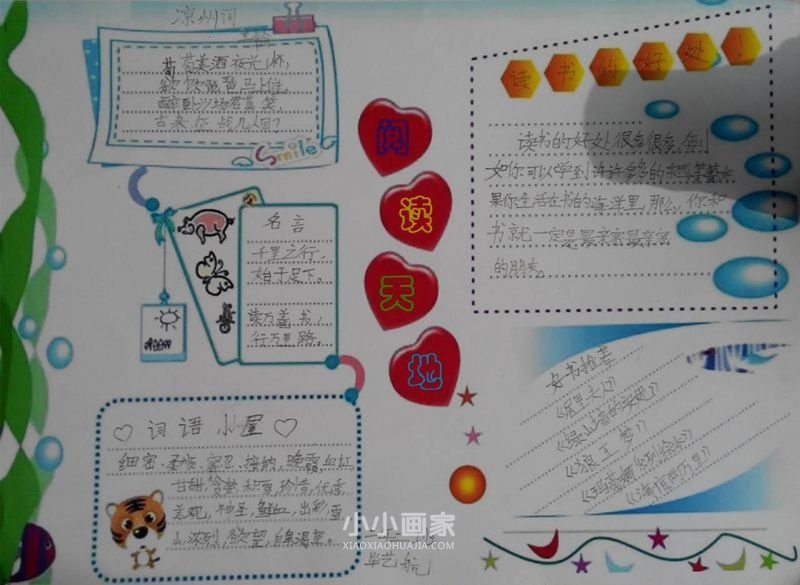 凉州词
葡萄美酒夜光杯,
欲饮琵琶马上催。
醉卧沙场君莫笑,
古来征战几人回?
Smile
名言
千里之行,
始于足下。
读万卷书,
行万里路。
阅
读
天
地
读书的好处!
读书的好处很多很多,
如你可以学到许许多多的东西等等如
果你生活在书的海洋里,那么,你和
书就一定是最亲密最亲密
的朋友。
好书推荐
《狼王梦》
词语小屋
细密、柔嫩、
接纳,晚霞,血红,
甘甜,积蓄,珍惜,优秀,
美观,神圣,鲜血,出彩,
浓烈,欲望,
小小画家
XIAOXIAOHUAJIA.COM